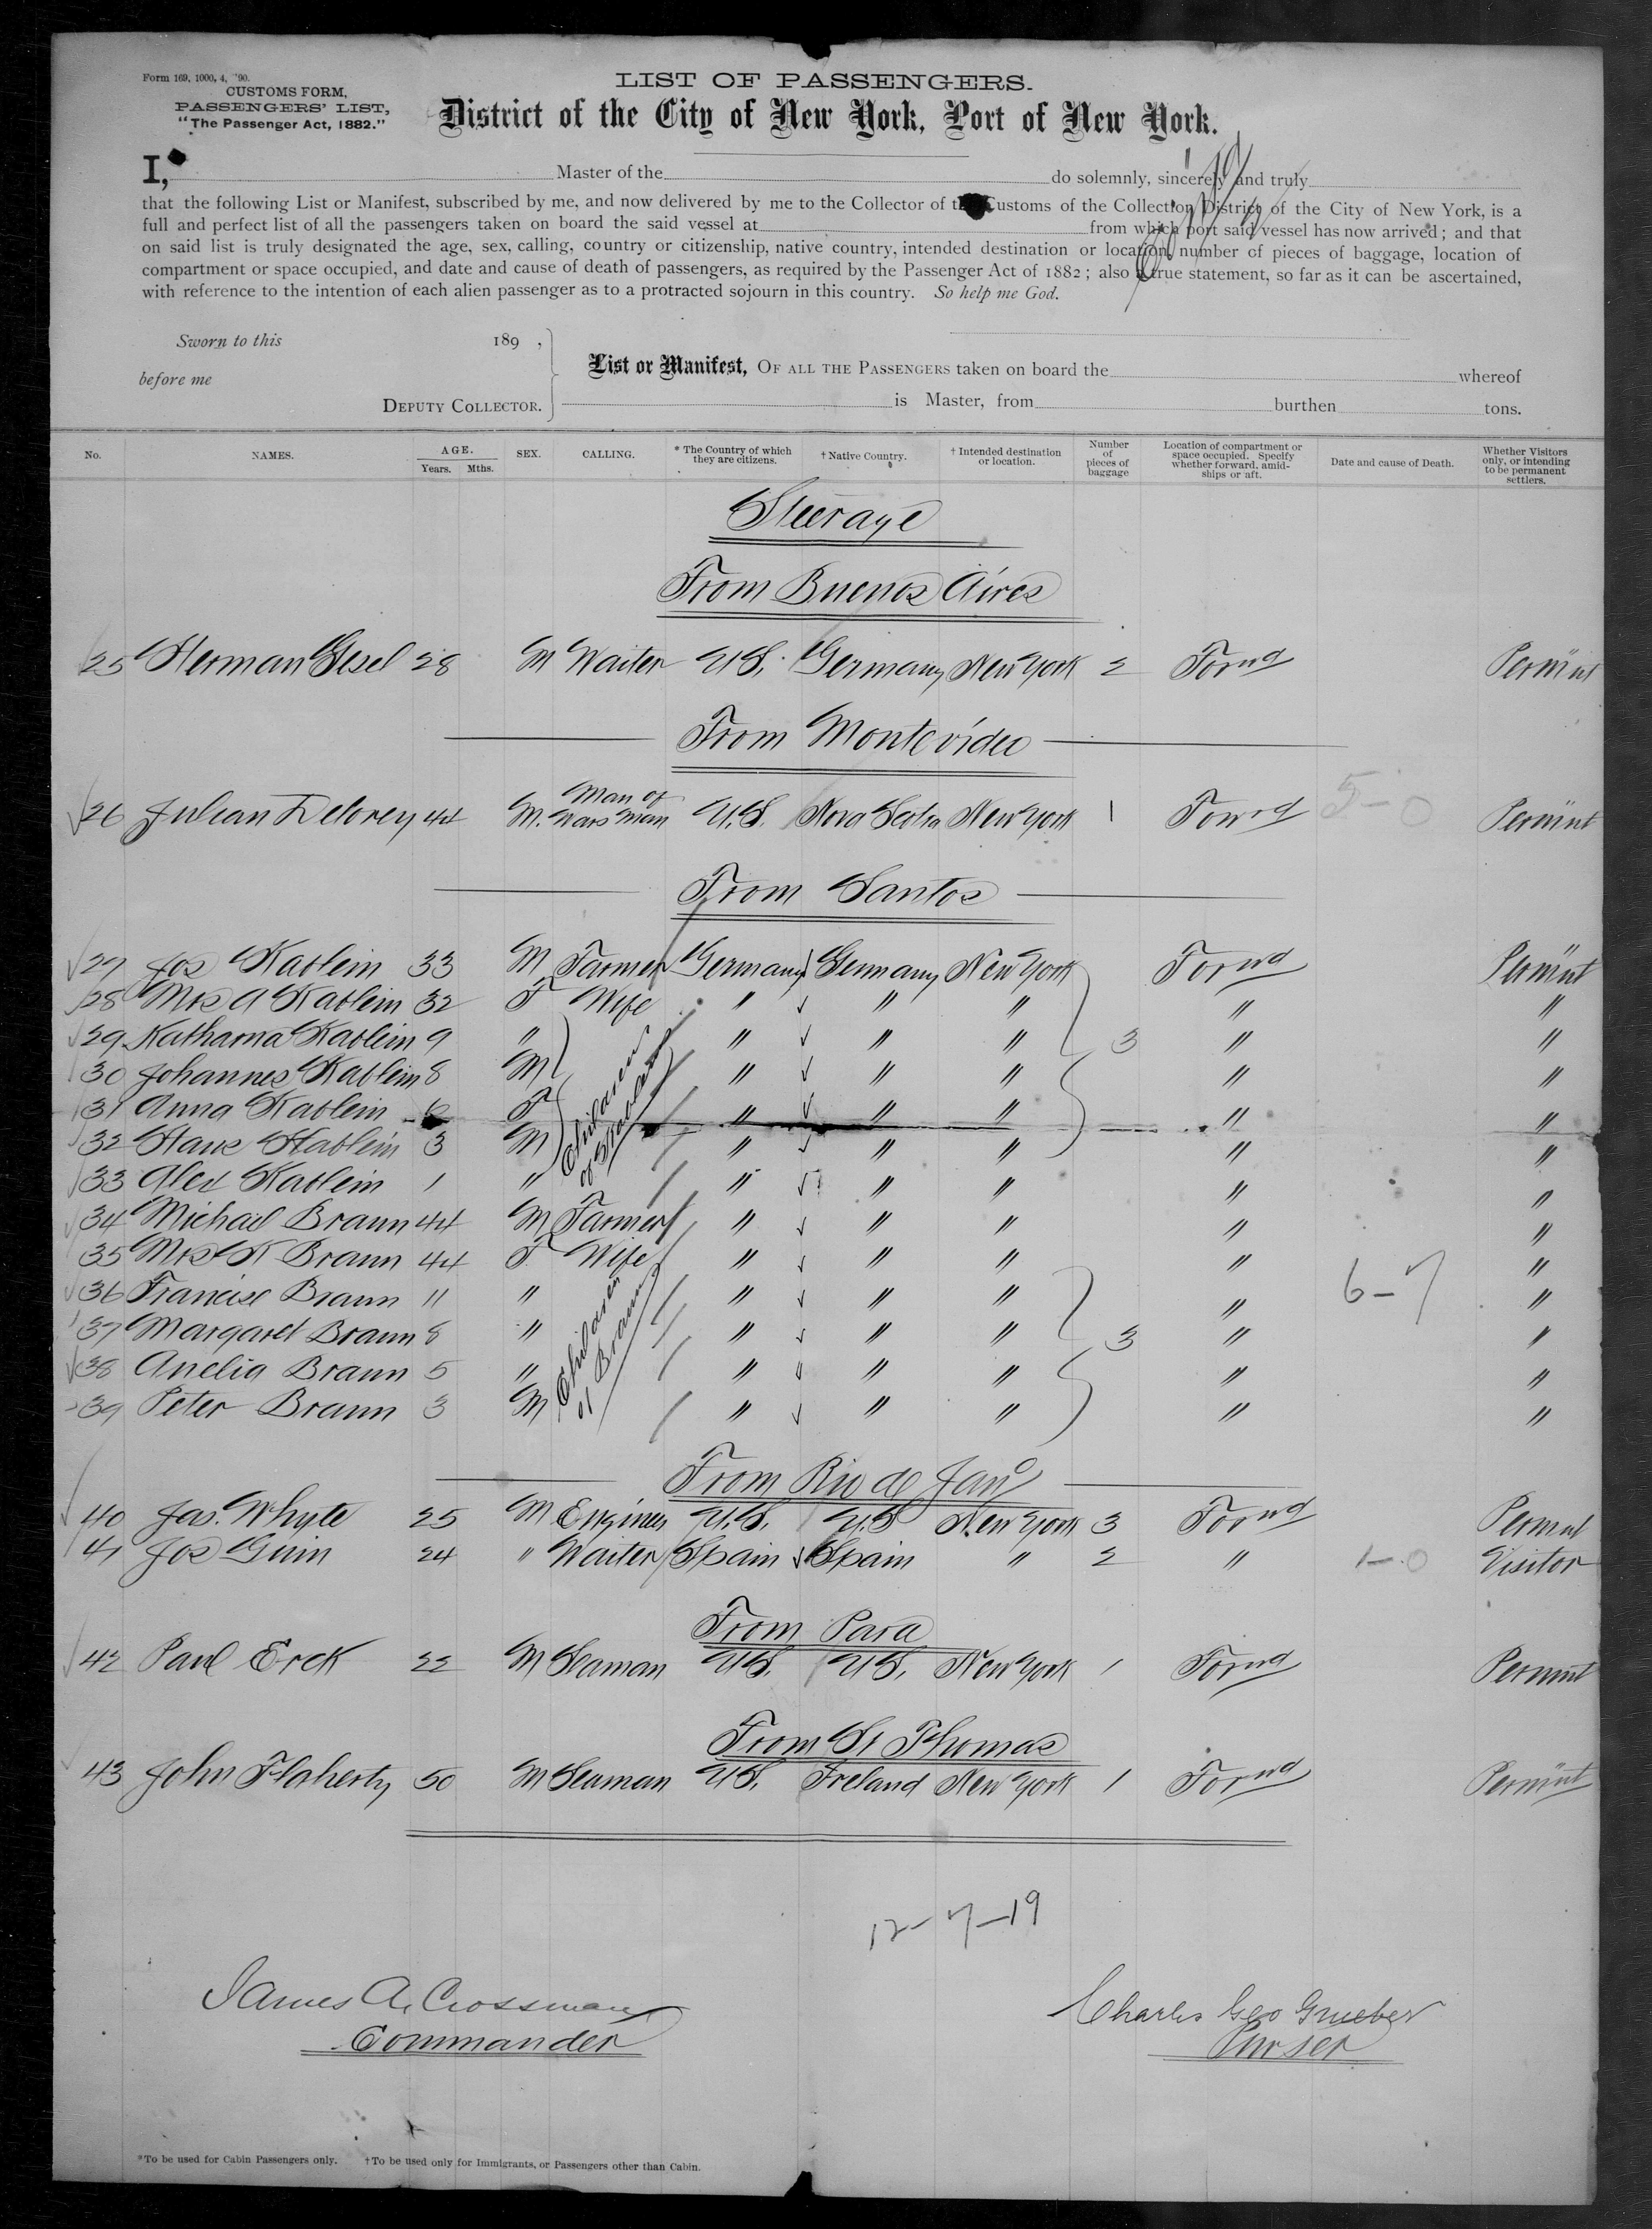 Form 169, 1000, 4, '90.
CUSTOMS FORM,
PASSENGERS' LIST,
"The Passenger Act, 1882."
LIST OF PASSENGERS.
District of the City of New York, Port of New York.
I, Master of the do solemnly, sincerely and truly
that the following List or Manifest, subscribed by me, and now delivered by me to the Collector of the Customs of the Collection District of the City of New York, is a
full and perfect list of all the passengers taken on board the said vessel at from which port said vessel has now arrived; and that
on said list is truly designated the age, sex, calling, country or citizenship, native country, intended destination or location, number of pieces of baggage, location of
compartment or space occupied, and date and cause of death of passengers, as required by the Passenger Act of 1882; also a true statement, so far as it can be ascertained,
with reference to the intention of each alien passenger as to a protracted sojourn in this country. So help me God.
Sworn to this 189 ,
before me
DEPUTY COLLECTOR.
List or Manifest, OF ALL THE PASSENGERS taken on board the whereof
is Master, from burthen tons.
No. NAMES. AGE. Years. Mths. SEX. CALLING. * The Country of which they are citizens. † Native Country. † Intended destination or location. Number of pieces of baggage Location of compartment or space occupied. Specify whether forward, amidships or aft. Date and cause of Death. Whether Visitors only, or intending to be permanent settlers.
Steerage
From Buenos Aires
25 Herman Gesel 28 M Waiter U.S. Germany New York 2 Forwd Perm'nt
From Montevideo
26 Julian Delorey 44 M. Man of Wars Man U.S. Nova Scotia New York 1 Forwd 5-0 Perm'nt
From Santos
27 Jos Kablein 33 M Farmer Germany Germany New York Forwd Perm'nt
28 Mrs A Kablein 32 F Wife " " " " "
29 Katharna Kablein 9 " " " " 3 " "
30 Johannes Kablein 8 M " " " " "
31 Anna Kablein 6 F " " " " "
32 Hans Kablein 3 M " " " " "
33 Alex Kablein 1 " " " " " "
Children of Kablein
34 Michael Braun 44 M Farmer " " " " "
35 Mrs K Braun 44 F Wife " " " " "
36 Francise Braun 11 " " " " " 6-7 "
37 Margaret Braun 8 " " " " 3 " "
38 Anelia Braun 5 " " " " " "
39 Peter Braun 3 M " " " " "
Children of Braun
From Rio de Jano
40 Jas. Whyte 25 M Engineer U.S. U.S New York 3 Forwd Permnt
41 Jos Guin 24 " Waiter Spain Spain " 2 " 1-0 Visitor
From Para
42 Paul Erck 22 M Seaman U.S. U.S. New York 1 Forwd Permnt
From St Thomas
43 John Flaherty 50 M Seaman U.S. Ireland New York 1 Forwd Perm'nt
12-7-19
James A. Crossman
Commander
Charles Geo Grueber
Purser
*To be used for Cabin Passengers only. †To be used only for Immigrants, or Passengers other than Cabin.